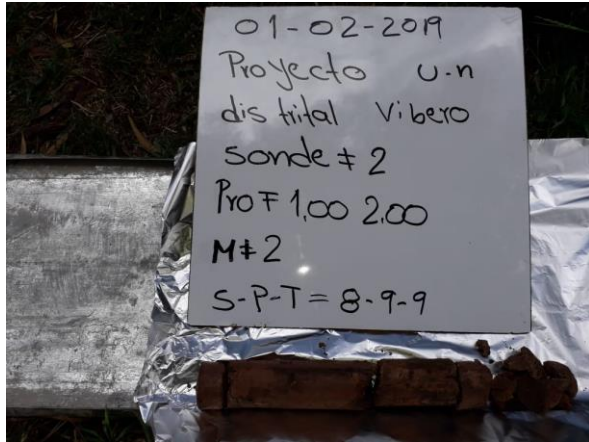 01-02-2019
Proyecto U-n
distrital Vibero
sonde # 2
Prof 1,00 2,00
M# 2
S-P-T= 8-9-9